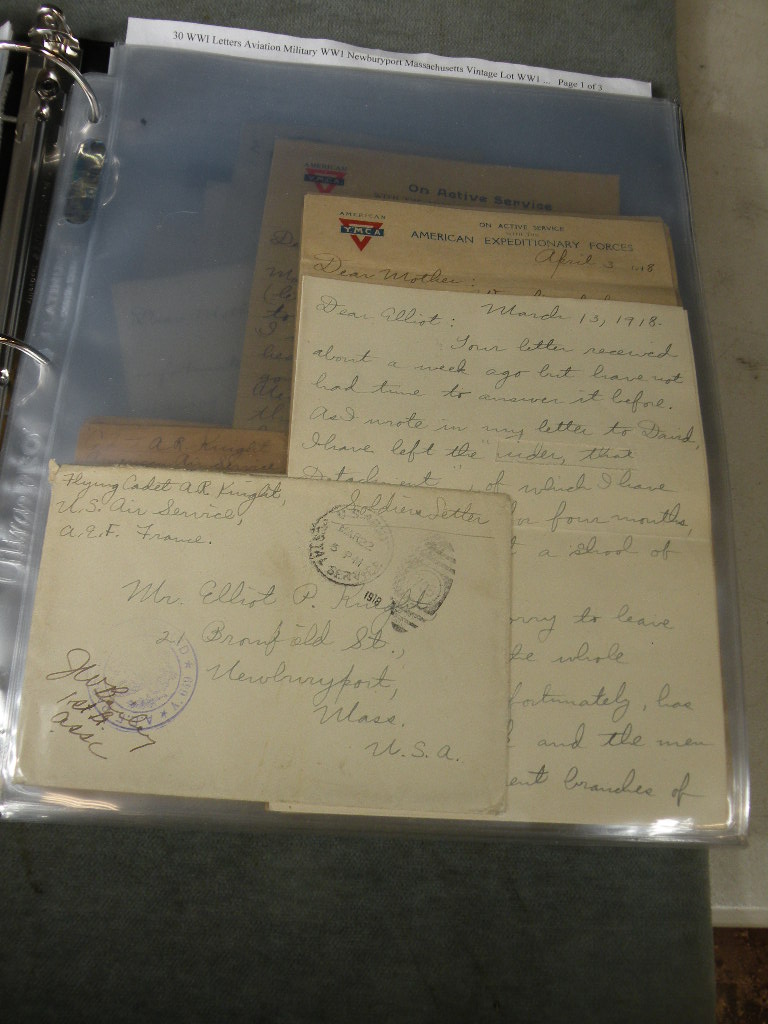 30 WWI Letters Aviation Military WW1 Newburyport Massachusetts Vintage Lot WW1 ... Page 1 of 3
AMERICAN
YMCA
On Active Service
AMERICAN
YMCA
ON ACTIVE SERVICE
WITH THE
AMERICAN EXPEDITIONARY FORCES
April 3, 18
Dear Mother:
March 13, 1918.
Dear Elliot:
Your letter received
about a week ago but have not
had time to answer it before.
As I wrote in my letter to David,
I have left the "
Detachment", of which I have
for four months,
t a school of
orry to leave
the whole
fortunately, has
and the men
ent branches of
A R Knight
Flying Cadet A R Knight,
U.S. Air Service,
A.E.F. France.
Soldiers Letter
5 PM
1918
Mr. Elliot P. Knight
21 Bromfield St.,
Newburyport,
Mass.
U.S.A.
1st Lt.
ASSC